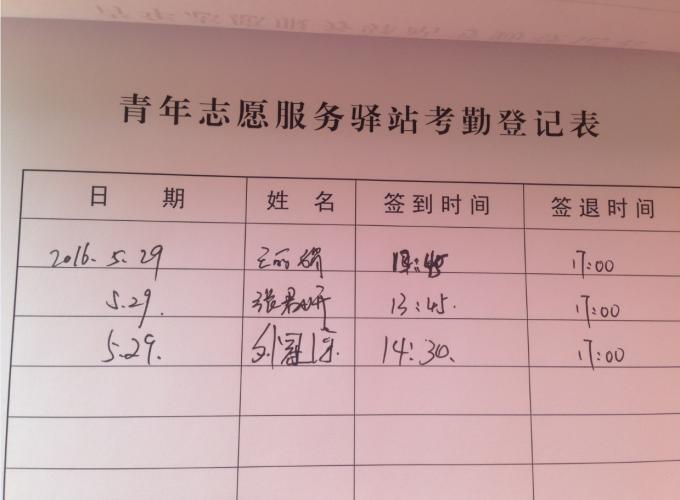 青年志愿服务驿站考勤登记表
日 期 姓 名 签到时间 签退时间
2016.5.29 17:00
5.29. 13:45. 17:00
5.29. 14:30. 17:00